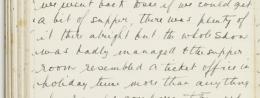 we went back to see if we could get
a bit of supper, there was plenty of
it there alright but the whole show
was badly managed & the supper
room resembled a ticket office in
holiday time more than anything